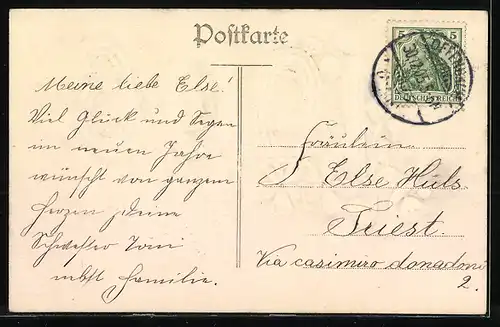 Postkarte
Meine liebe Else!
Viel Glück und Segen
im neuen Jahre
wünscht von ganzem
Herzen Deine
Schwester Toni
nebst Familie.
5 5
DEUTSCHES REICH
Fräulein
Else Hüls
Triest.
Via casimiro donadoni
2.